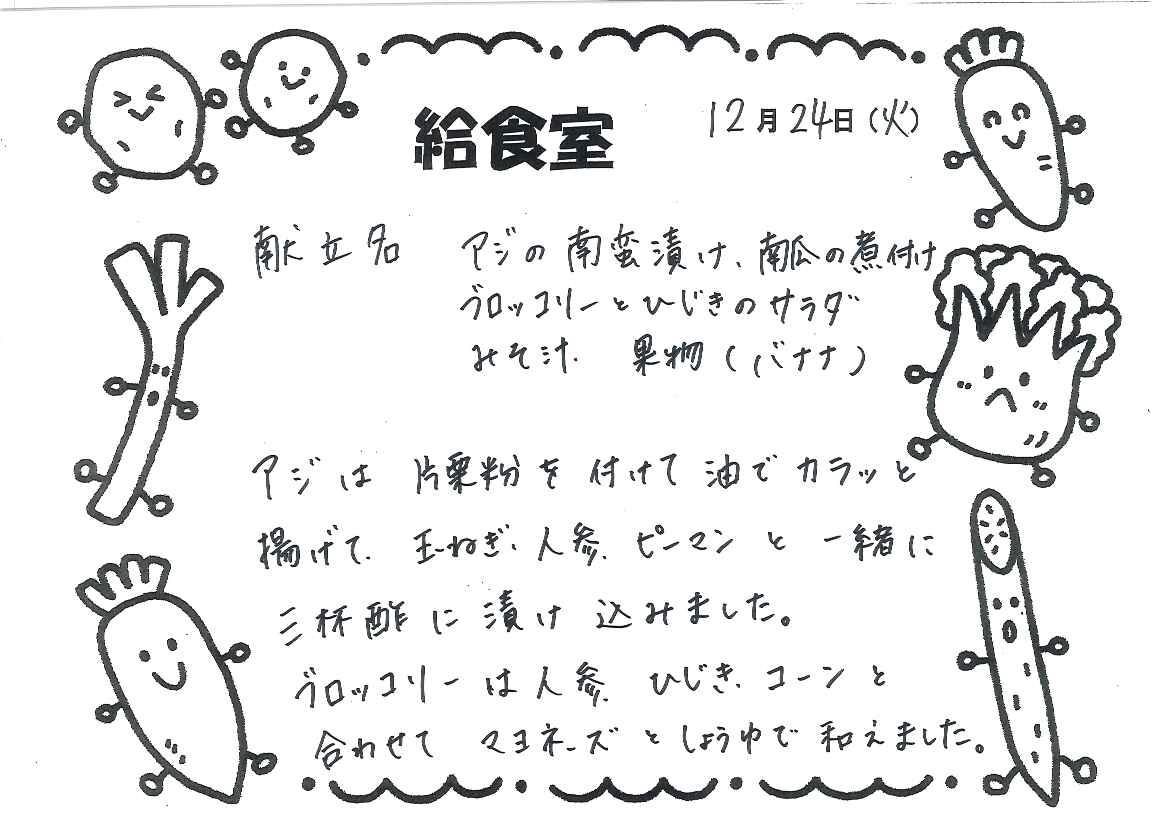 給食室
12月24日(火)
献立名 アジの南蛮漬け、南瓜の煮付け
ブロッコリーとひじきのサラダ
みそ汁、果物(バナナ)
アジは片栗粉を付けて油でカラッと
揚げて、玉ねぎ、人参、ピーマンと一緒に
三杯酢に漬け込みました。
ブロッコリーは人参、ひじき、コーンと
合わせてマヨネーズとしょうゆで和えました。